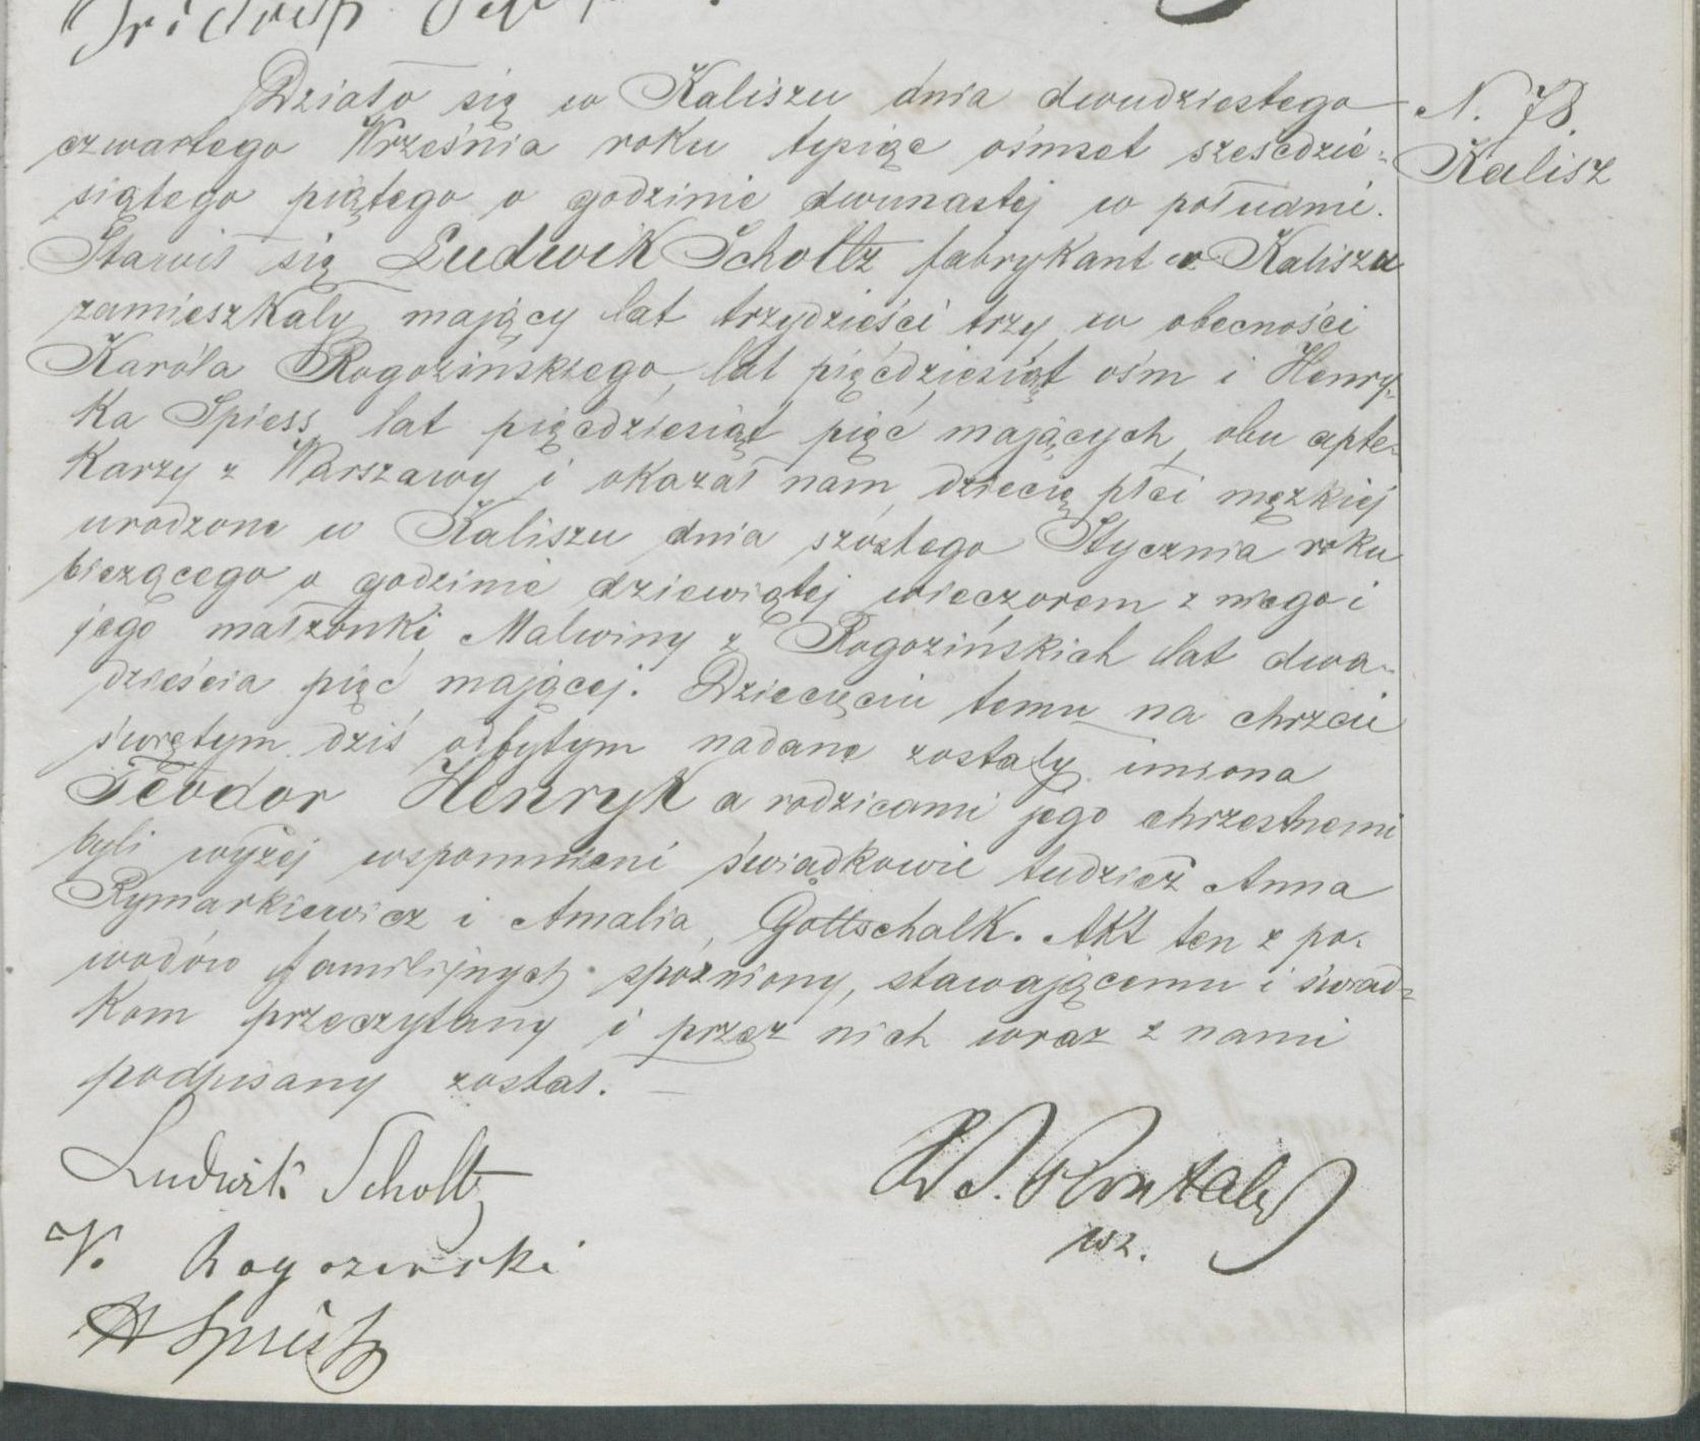 Działo się w Kaliszu dnia dwudziestego
czwartego Września roku tysiąc ośmset sześćdzie-
siątego piątego o godzinie dwunastej w południe.
Stawił się Ludwik Scholtz fabrykant w Kaliszu
zamieszkały mający lat trzydzieści trzy w obecności
Karóla Rogozińskiego, lat pięćdziesiąt ośm i Henry-
ka Spiess lat pięćdziesiąt pięć mających, obu apte-
karzy z Warszawy i okazał nam dziecię płci męzkiej
urodzone w Kaliszu dnia szóstego Stycznia roku
bieżącego o godzinie dziewiątej wieczorem z niego i
jego małżonki Malwiny z Rogozińskich lat dwa-
dzieścia pięć mającej. Dziecięciu temu na chrzcie
świętym dziś odbytym nadane zostały imiona
Teodor Henryk a rodzicami jego chrzestnemi
byli wyżej wspomnieni świadkowie tudzież Anna
Rymarkiewicz i Amalia Gottschalk. Akt ten z po-
wodów familijnych spóźniony, stawającemu i świad-
kom przeczytany i przez nich wraz z nami
podpisany został.
N. 78.
Kalisz
Ludwik Scholtz
K. Rogozinski
H Spiess